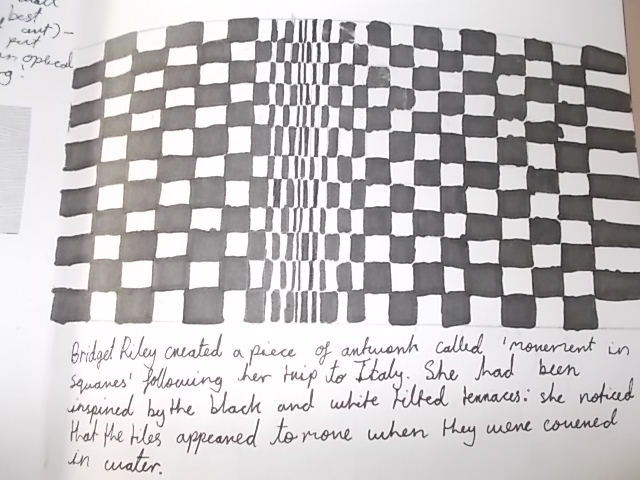 best
art) -
put
an optical
Bridget Riley created a piece of artwork called 'movement in
squares' following her trip to Italy. She had been
inspired by the black and white tilted terraces: she noticed
that the tiles appeared to move when they were covered
in water.